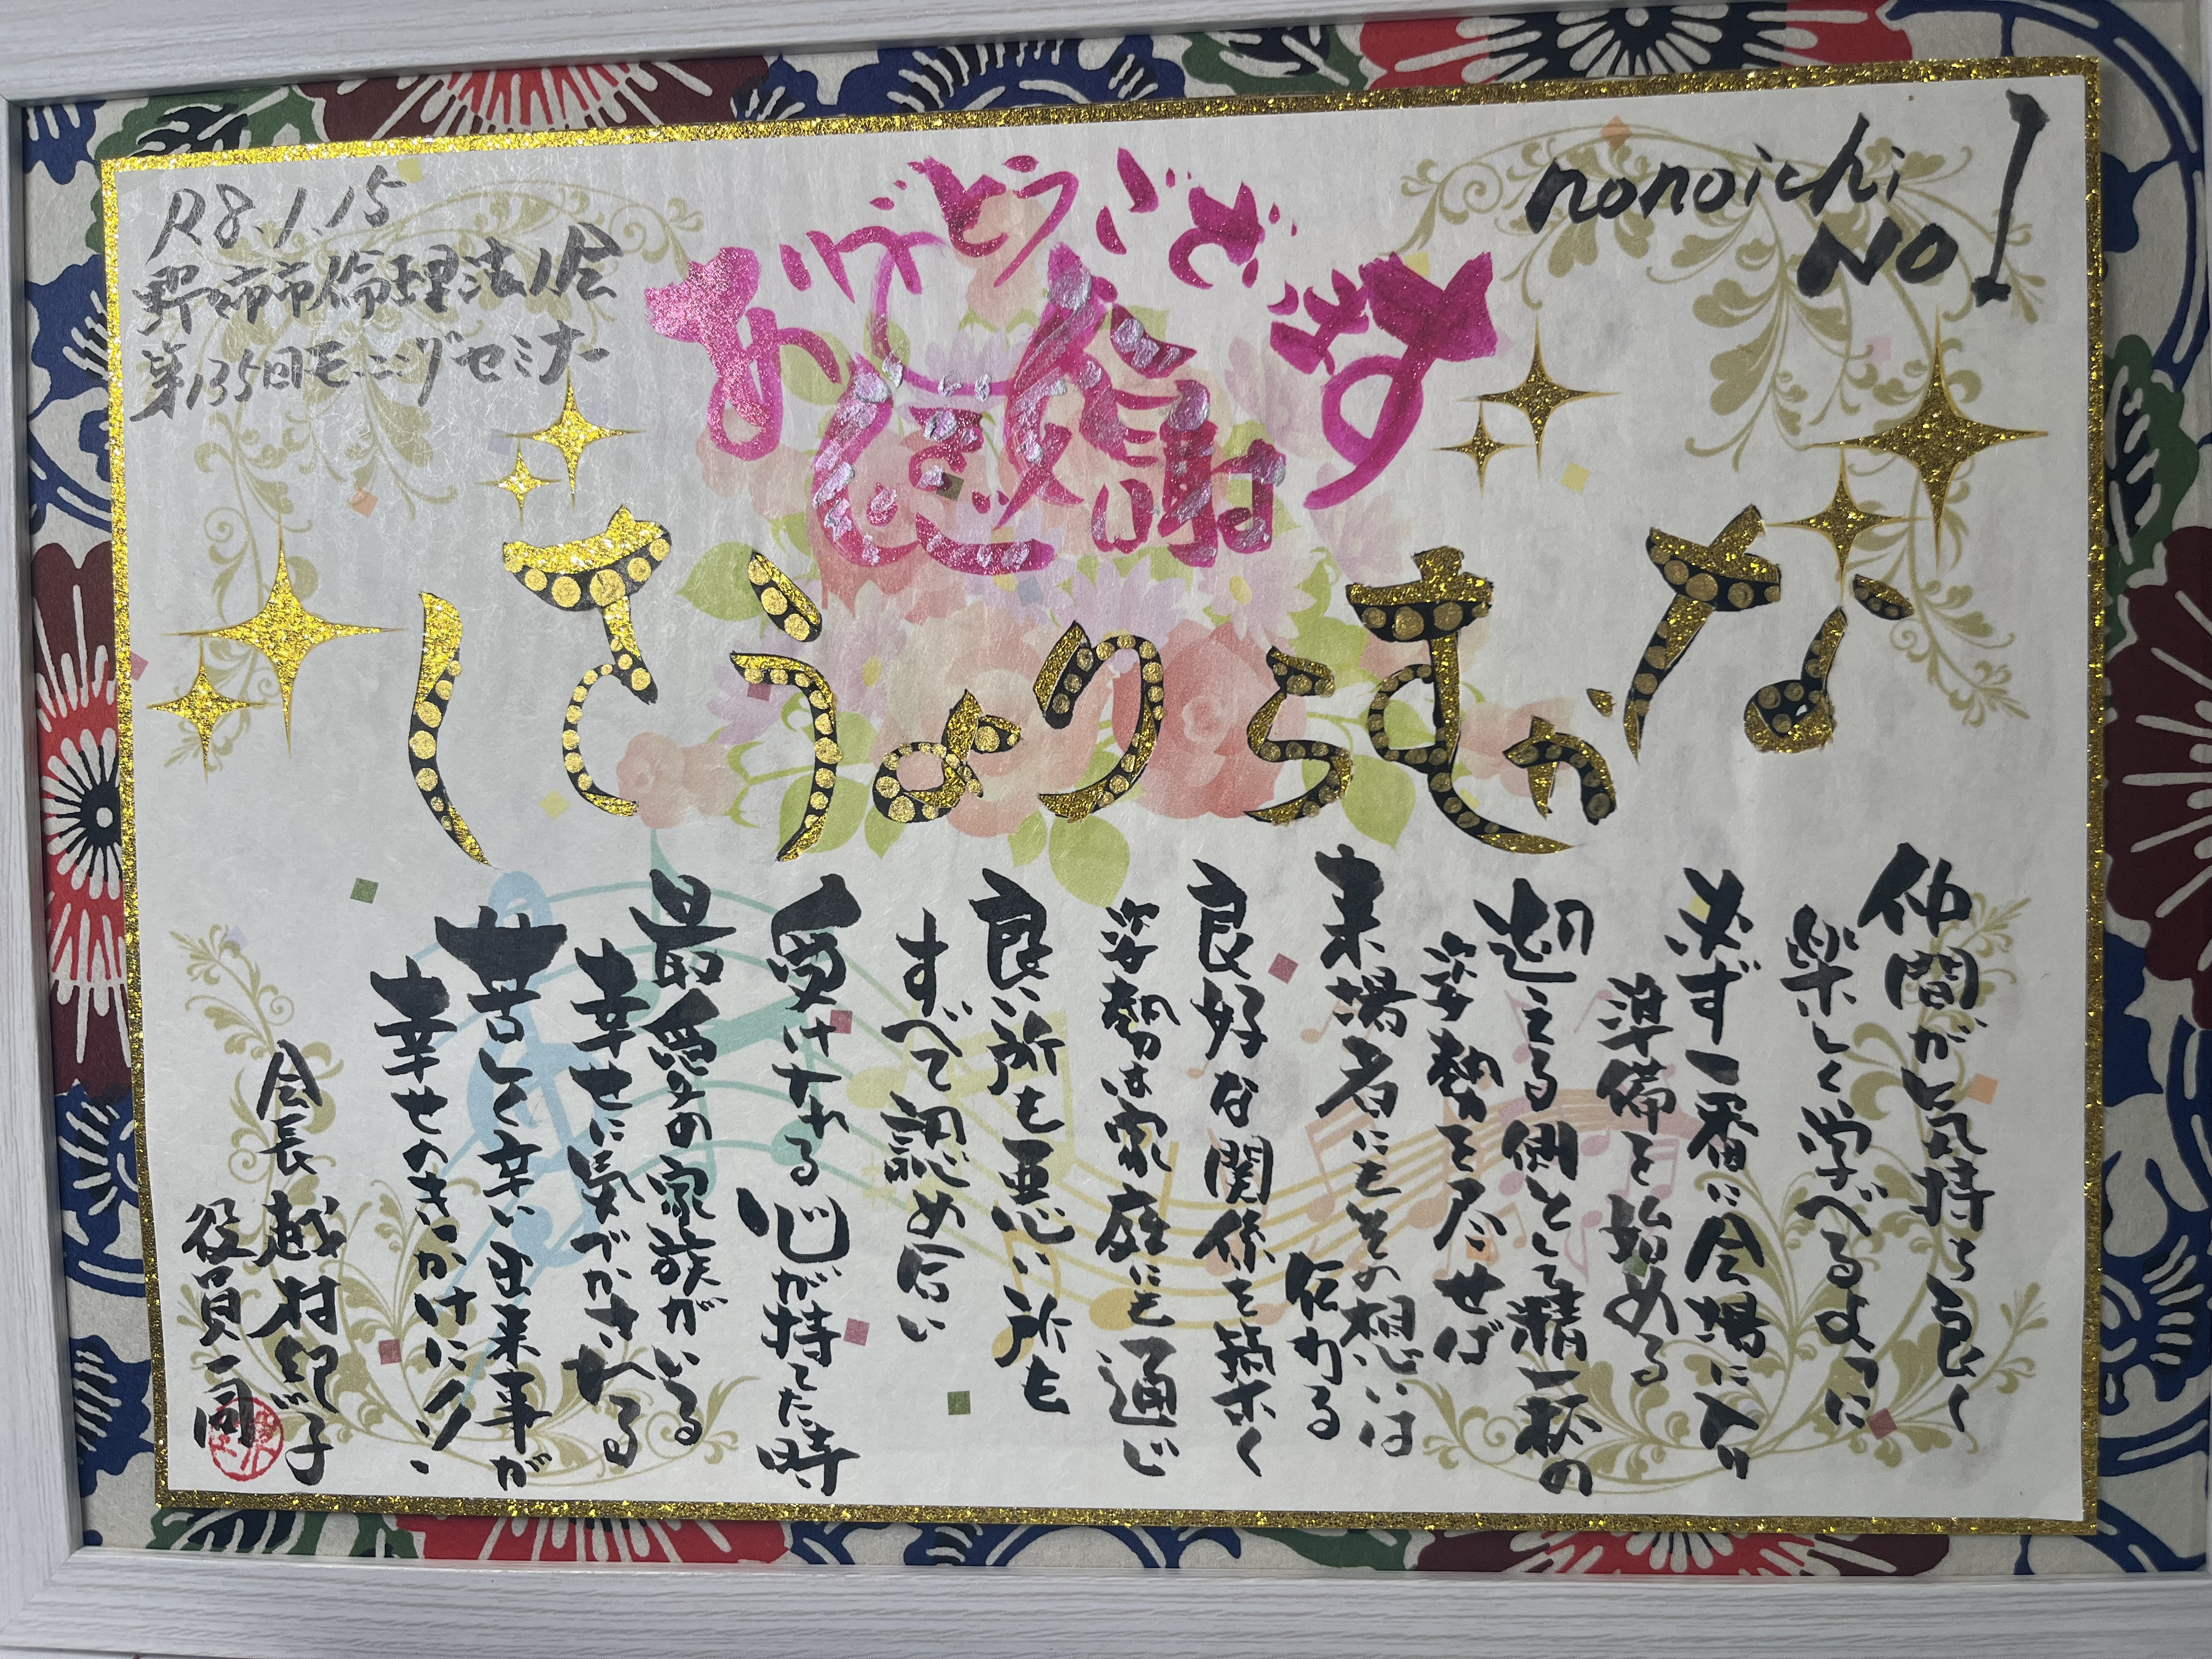 nonoichi
NO 1
ありがとうございます
感謝
R8.1.15
野々市市倫理法人会
第135回モーニングセミナー
なかむらりょうさく
仲間が気持ち良く
楽しく学べるように
必ず一番に会場に入り
準備を始める
迎える側として精一杯の
姿勢を尽せば
来場者にもその想いは
伝わる
良好な関係を築く
姿勢は家庭にも通じ
良い所も悪い所も
すべて認め合い
受け入れる心が持てた時
最愛の家族がいる
幸せに気づかされる
苦しく辛い出来事が
幸せのきっかけに!!
会長 越村
役員一同